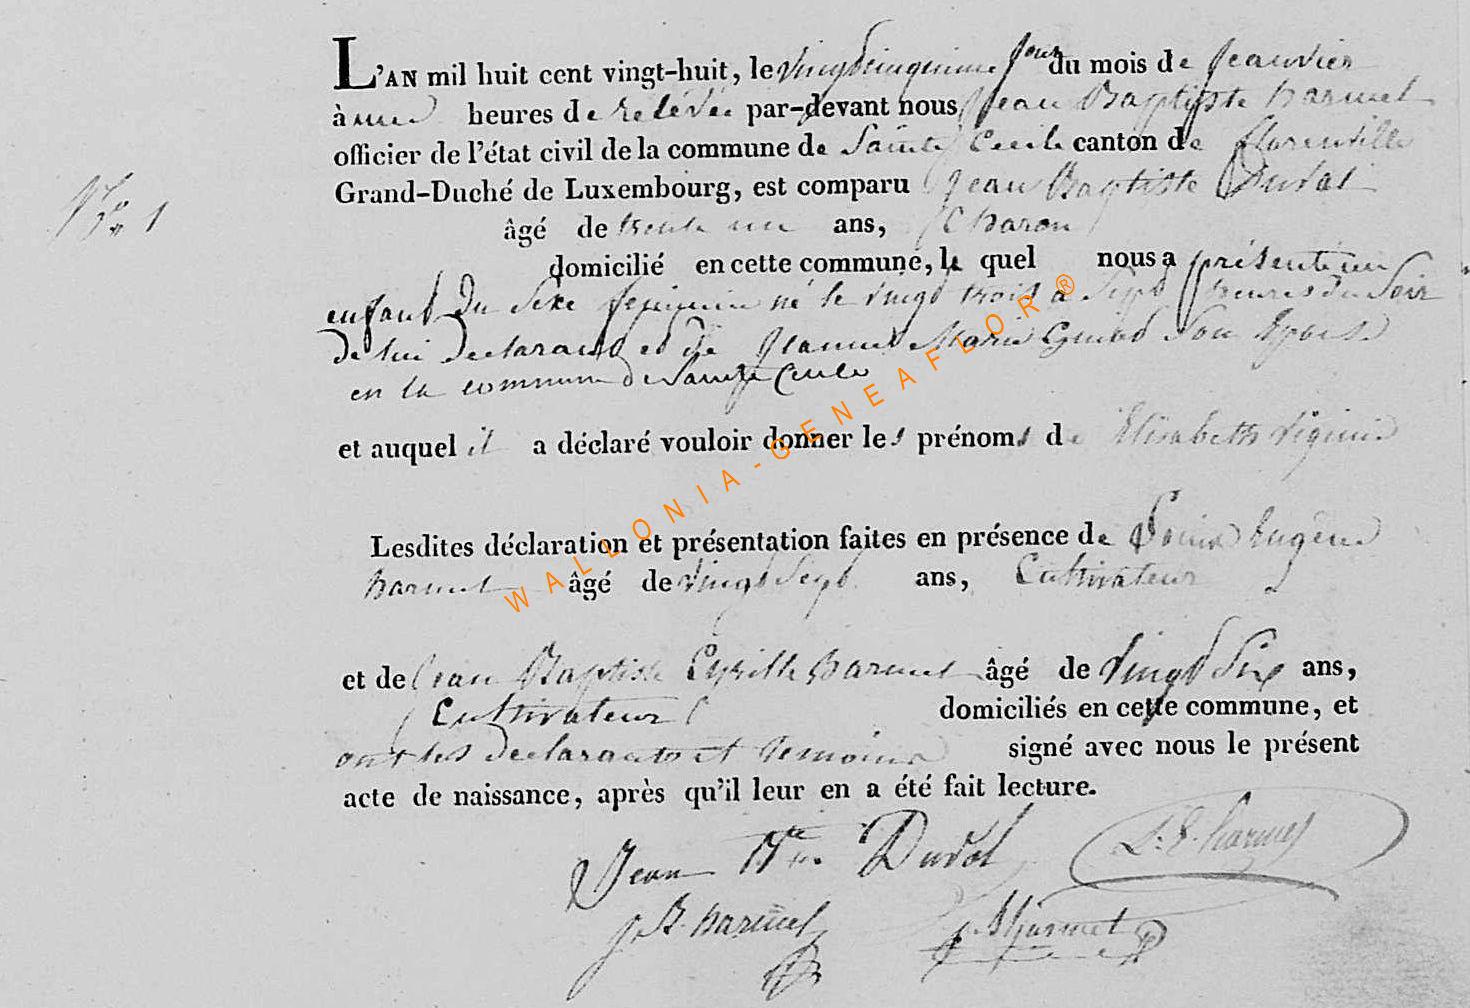 L'AN mil huit cent vingt-huit, le vingtcinquime jour du mois de Jeanvier
à une heures de relévée par-devant nous Jean Baptiste harmel
officier de l'état civil de la commune de Sainte Cecile canton de florenville
Grand-Duché de Luxembourg, est comparu Jean Baptiste Duval
N.ro 1
âgé de trente un ans, Charon
domicilié en cette commune, le quel nous a présenté un
enfant du sexe feminin né le vingt trois à sept heures du soir
de lui declarant et de Jeanne Marie son Epouse
en la commune de Sainte Cecile
et auquel il a déclaré vouloir donner les prénoms de Elisabeth
Lesdites déclaration et présentation faites en présence de Eugène
harmel âgé de vingt sept ans, Cultivateur
et de Jean Baptiste Cyrille harmel âgé de vingt six ans,
Cultivateur domiciliés en cette commune, et
ont les declarants et temoins signé avec nous le présent
acte de naissance, après qu'il leur en a été fait lecture.
Jean Bte Duval L. E. harmel
J. B. harmel harmel
WALLONIA-GENEAFLOR®